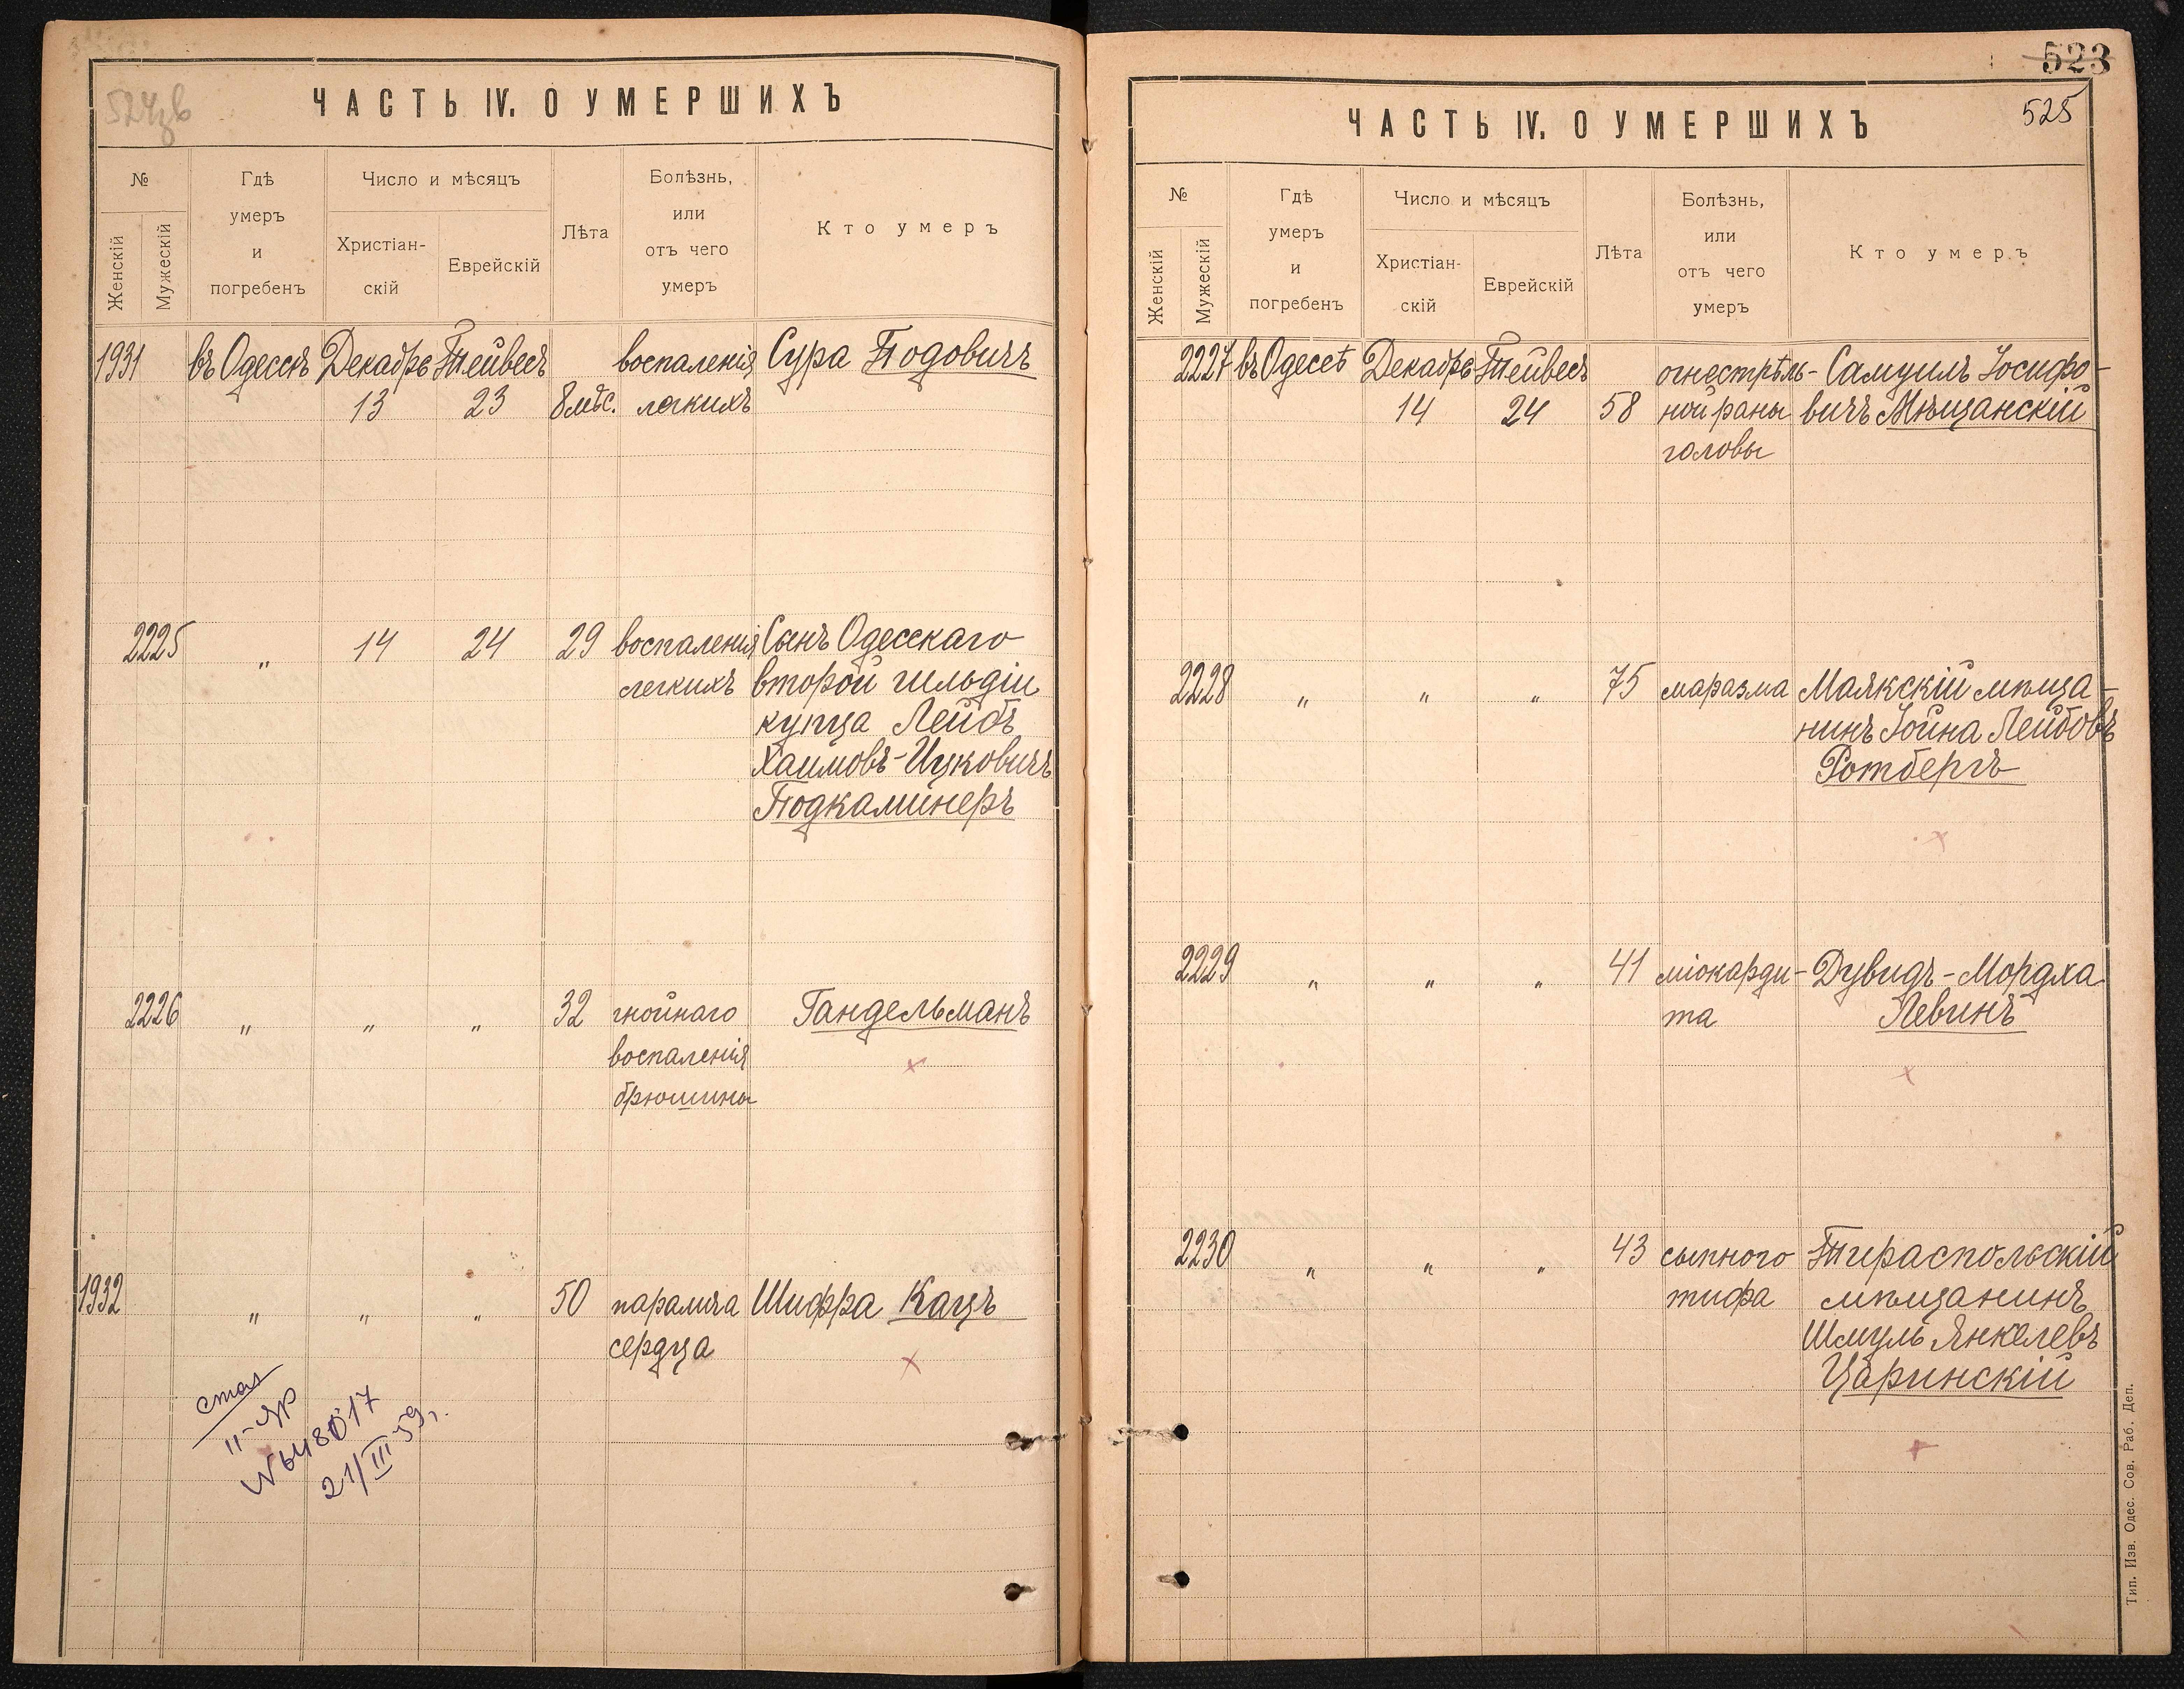 524зв
ЧАСТЬ IV. О УМЕРШИХЪ
№
Женскій
Мужескій
Гдѣ
умеръ
и
погребенъ
Число и мѣсяцъ
Христіан-
скій
Еврейскій
Лѣта
Болѣзнь,
или
отъ чего
умеръ
Кто умеръ
1931 въ Одессѣ Декабрь Тейвесъ воспаленія Сура Подовичъ
13 23 8 мѣс. легкихъ
2225 „ 14 24 29 воспаленія Сынъ Одесскаго
легкихъ второй гильдіи
купца Лейбъ
Хаимовъ-Ицковичъ
Подкаминеръ
2226 „ „ „ 32 гнойнаго Гандельманъ
воспаленія
брюшины
1932 „ „ „ 50 паралича Шифра Кацъ
сердца
II-ЯР
21/III 59г.
523
525
ЧАСТЬ IV. О УМЕРШИХЪ
№
Женскій
Мужескій
Гдѣ
умеръ
и
погребенъ
Число и мѣсяцъ
Христіан-
скій
Еврейскій
Лѣта
Болѣзнь,
или
отъ чего
умеръ
Кто умеръ
2227 въ Одесѣ Декабрь Тейвесъ огнестрѣль- Самуилъ Іосифо-
14 24 58 ной раны вичъ Мѣщанскій
головы
2228 „ „ „ 75 маразма Маякскій мѣща-
нинъ Іойна Лейбовъ
Ротбергъ
2229 „ „ „ 41 міокарди- Дувидъ-Мордха
та Левинъ
2230 „ „ „ 43 сыпного Тираспольскій
тифа мѣщанинъ
Шмуль Янкелевъ
Царинскій
Тип. Изв. Одес. Сов. Раб. Деп.